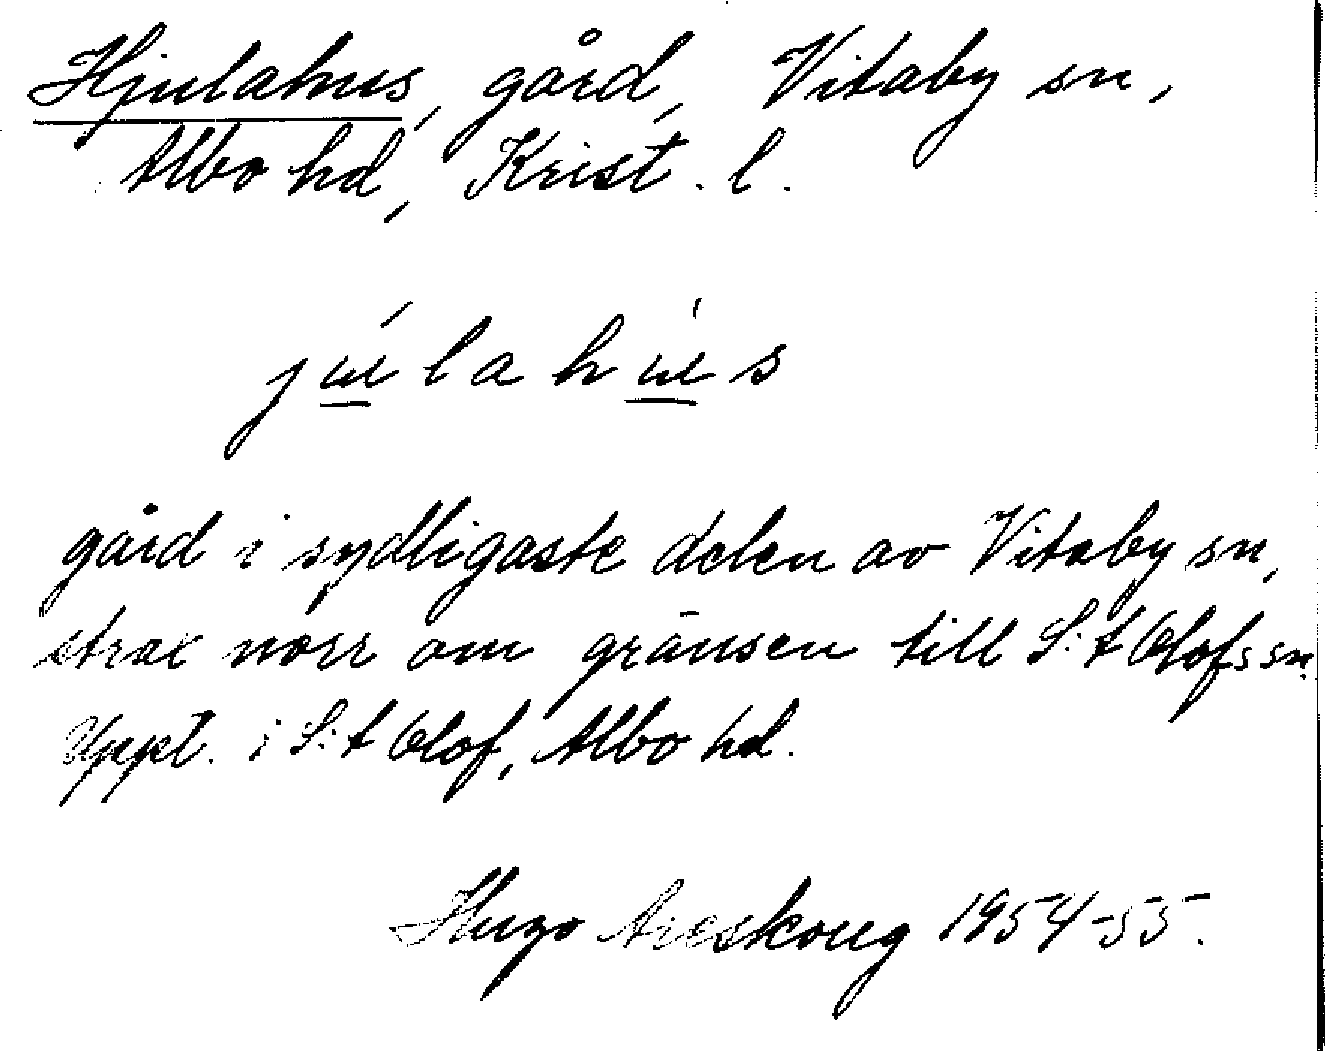 Hjulahus, gård, Vitaby sn,
Albo hd, Krist. l.
júlahùs
gård i sydligaste delen av Vitaby sn,
strax norr om gränsen till S:t Olofs sn.
Uppt. i S:t Olof, Albo hd.
Hugo Areskoug 1954-55.